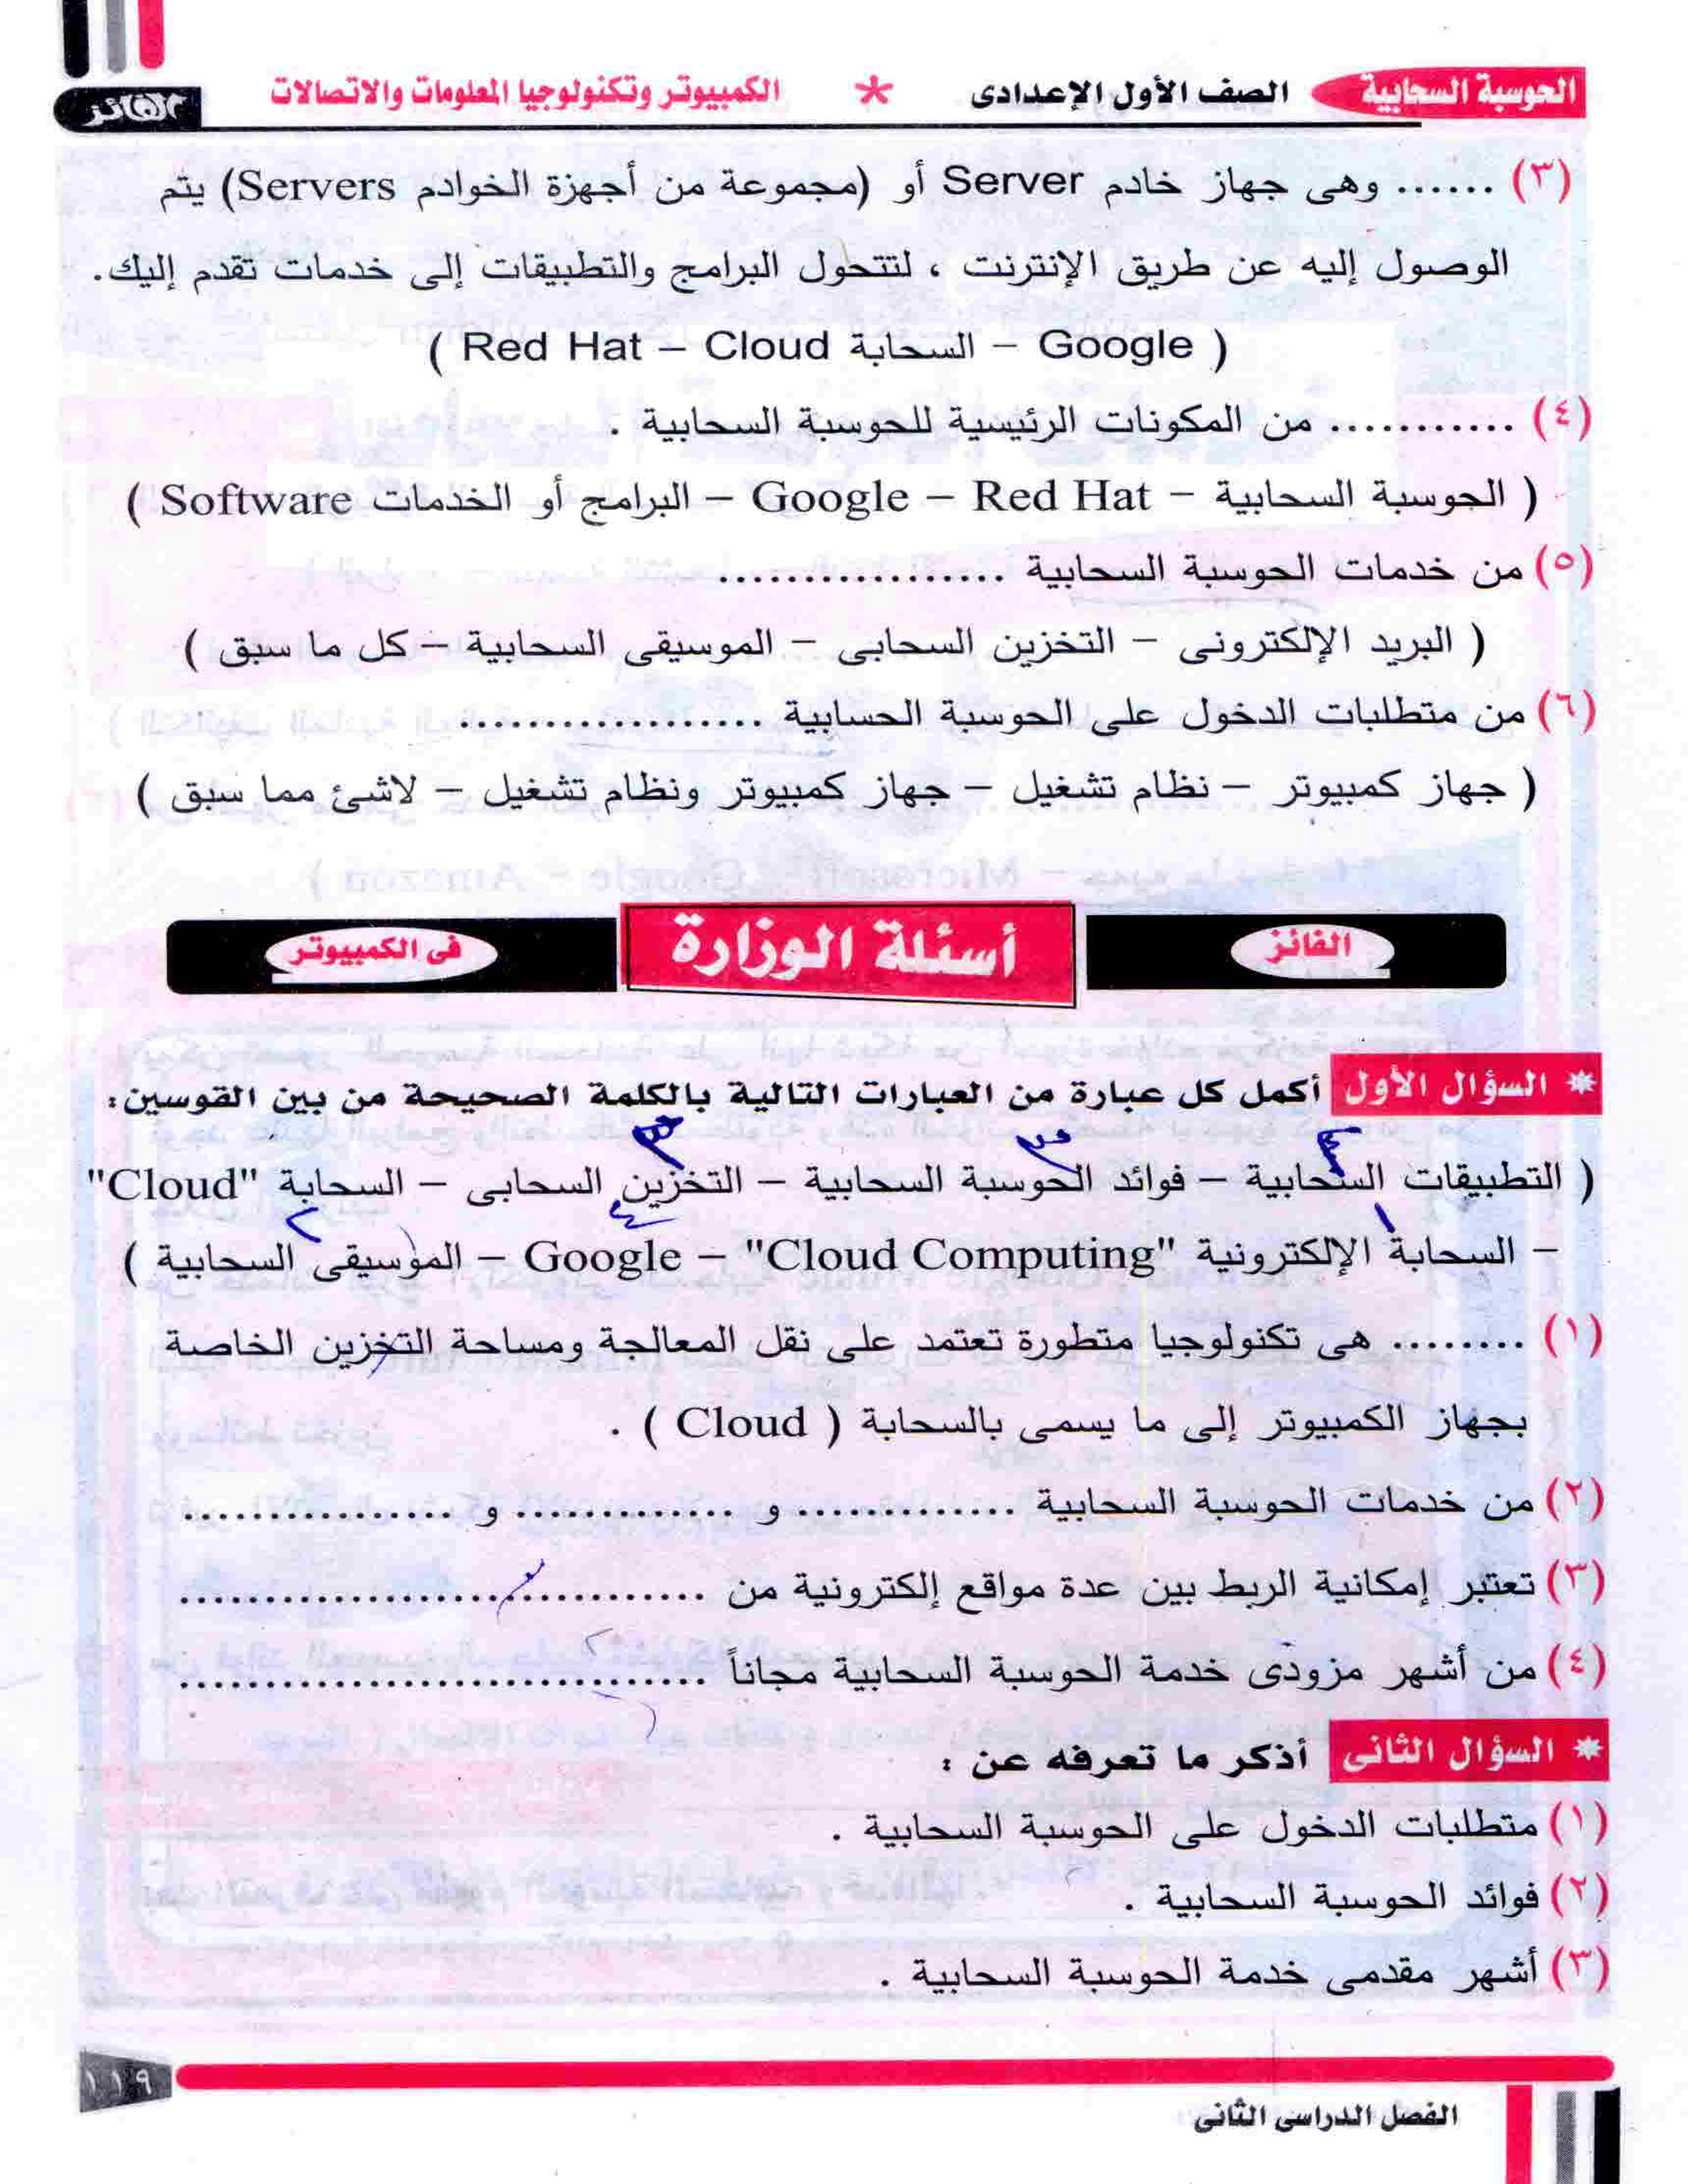 الحوسبة السحابية الصف الأول الإعدادى * الكمبيوتر وتكنولوجيا المعلومات والاتصالات الفائز
(٣) ...... وهى جهاز خادم Server أو (مجموعة من أجهزة الخوادم Servers) يتم
الوصول إليه عن طريق الإنترنت ، لتتحول البرامج والتطبيقات إلى خدمات تقدم إليك.
( Google – السحابة Red Hat – Cloud )
(٤) ........... من المكونات الرئيسية للحوسبة السحابية .
( الحوسبة السحابية – Google – Red Hat – البرامج أو الخدمات Software )
(٥) من خدمات الحوسبة السحابية ..................
( البريد الإلكترونى – التخزين السحابى – الموسيقى السحابية – كل ما سبق )
(٦) من متطلبات الدخول على الحوسبة الحسابية ...................
( جهاز كمبيوتر – نظام تشغيل – جهاز كمبيوتر ونظام تشغيل – لاشئ مما سبق )
الفائز أسئلة الوزارة فى الكمبيوتر
* السؤال الأول أكمل كل عبارة من العبارات التالية بالكلمة الصحيحة من بين القوسين:
( التطبيقات السحابية – فوائد الحوسبة السحابية – التخزين السحابى – السحابة "Cloud"
– السحابة الإلكترونية "Cloud Computing" – Google – الموسيقى السحابية )
(١) ........ هى تكنولوجيا متطورة تعتمد على نقل المعالجة ومساحة التخزين الخاصة
بجهاز الكمبيوتر إلى ما يسمى بالسحابة ( Cloud ) .
(٢) من خدمات الحوسبة السحابية ............. و ............. و ................
(٣) تعتبر إمكانية الربط بين عدة مواقع إلكترونية من ...............................
(٤) من أشهر مزودى خدمة الحوسبة السحابية مجاناً ...............................
* السؤال الثانى أذكر ما تعرفه عن :
(١) متطلبات الدخول على الحوسبة السحابية .
(٢) فوائد الحوسبة السحابية .
(٣) أشهر مقدمى خدمة الحوسبة السحابية .
١١٩
الفصل الدراسى الثانى